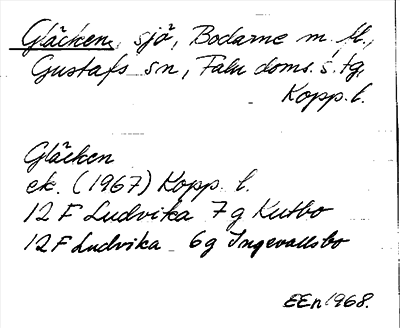 Gläcken, sjö, Bodarne m. fl.,
Gustafs sn, Falu doms. s. tg,
Kopp. l.
Gläcken
ek. (1967) Kopp. l.
12 F Ludvika 7 g Kutbo
12 F Ludvika 6 g Ingevallsbo
EEn 1968.